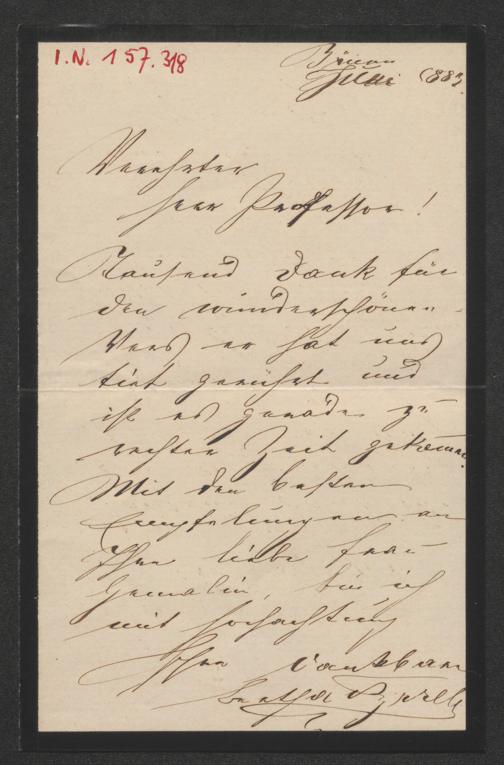 I.N. 157.318
Brünn
Juli 1883
Verehrter
Herr Professor!
Tausend Dank für
den wunderschönen
Vers er hat uns
tief gerührt und
ist es gerade zu
rechter Zeit gekommen.
Mit den besten
Empfelungen an
Ihre liebe Frau
Gemalin, bin ich
mit Hochachtung
Ihre dankbare
Bertha